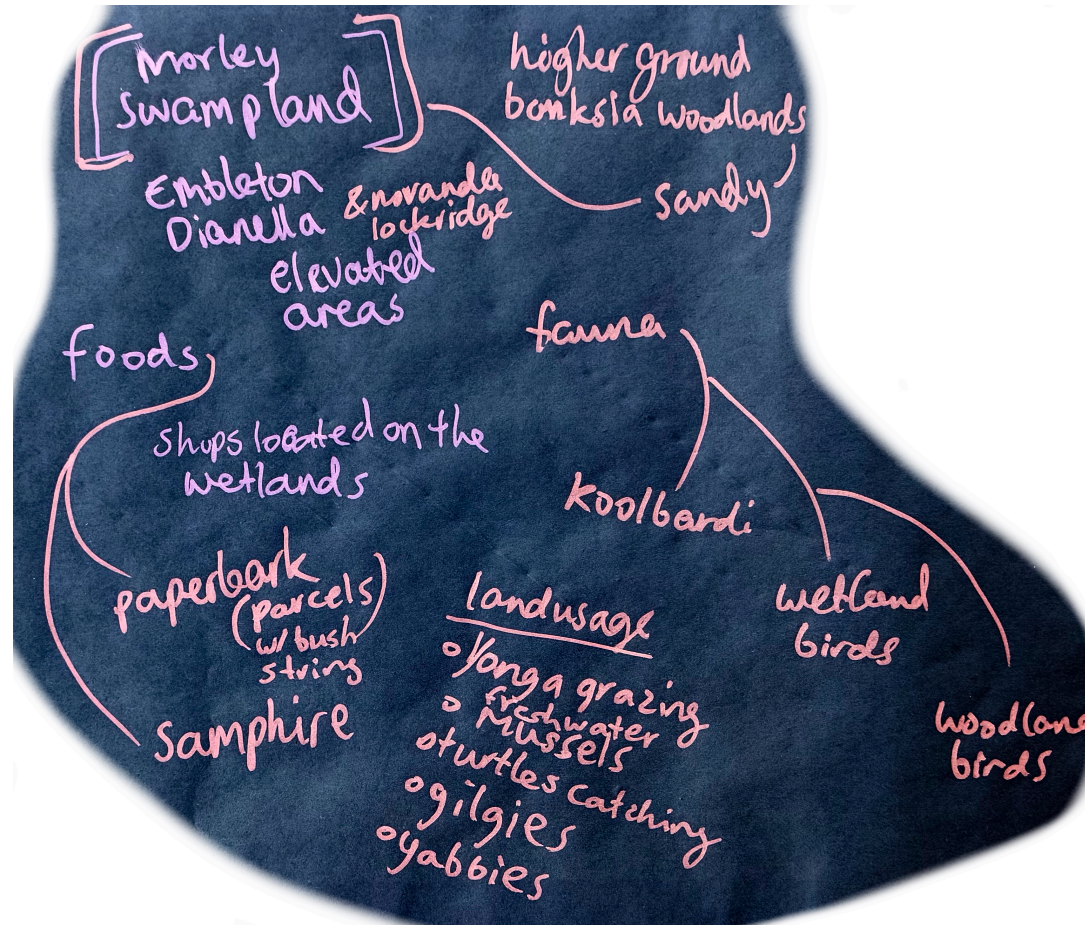 Morley
swampland
higher ground
banksia woodlands
sandy
Embleton
Dianella
& noranda
lockridge
elevated
areas
foods
shops located on the
wetlands
paperbark
(parcels
w/ bush
string)
samphire
fauna
koolbardi
wetland
birds
woodland
birds
landusage
Yonga grazing
freshwater
Mussels
turtles catching
gilgies
yabbies